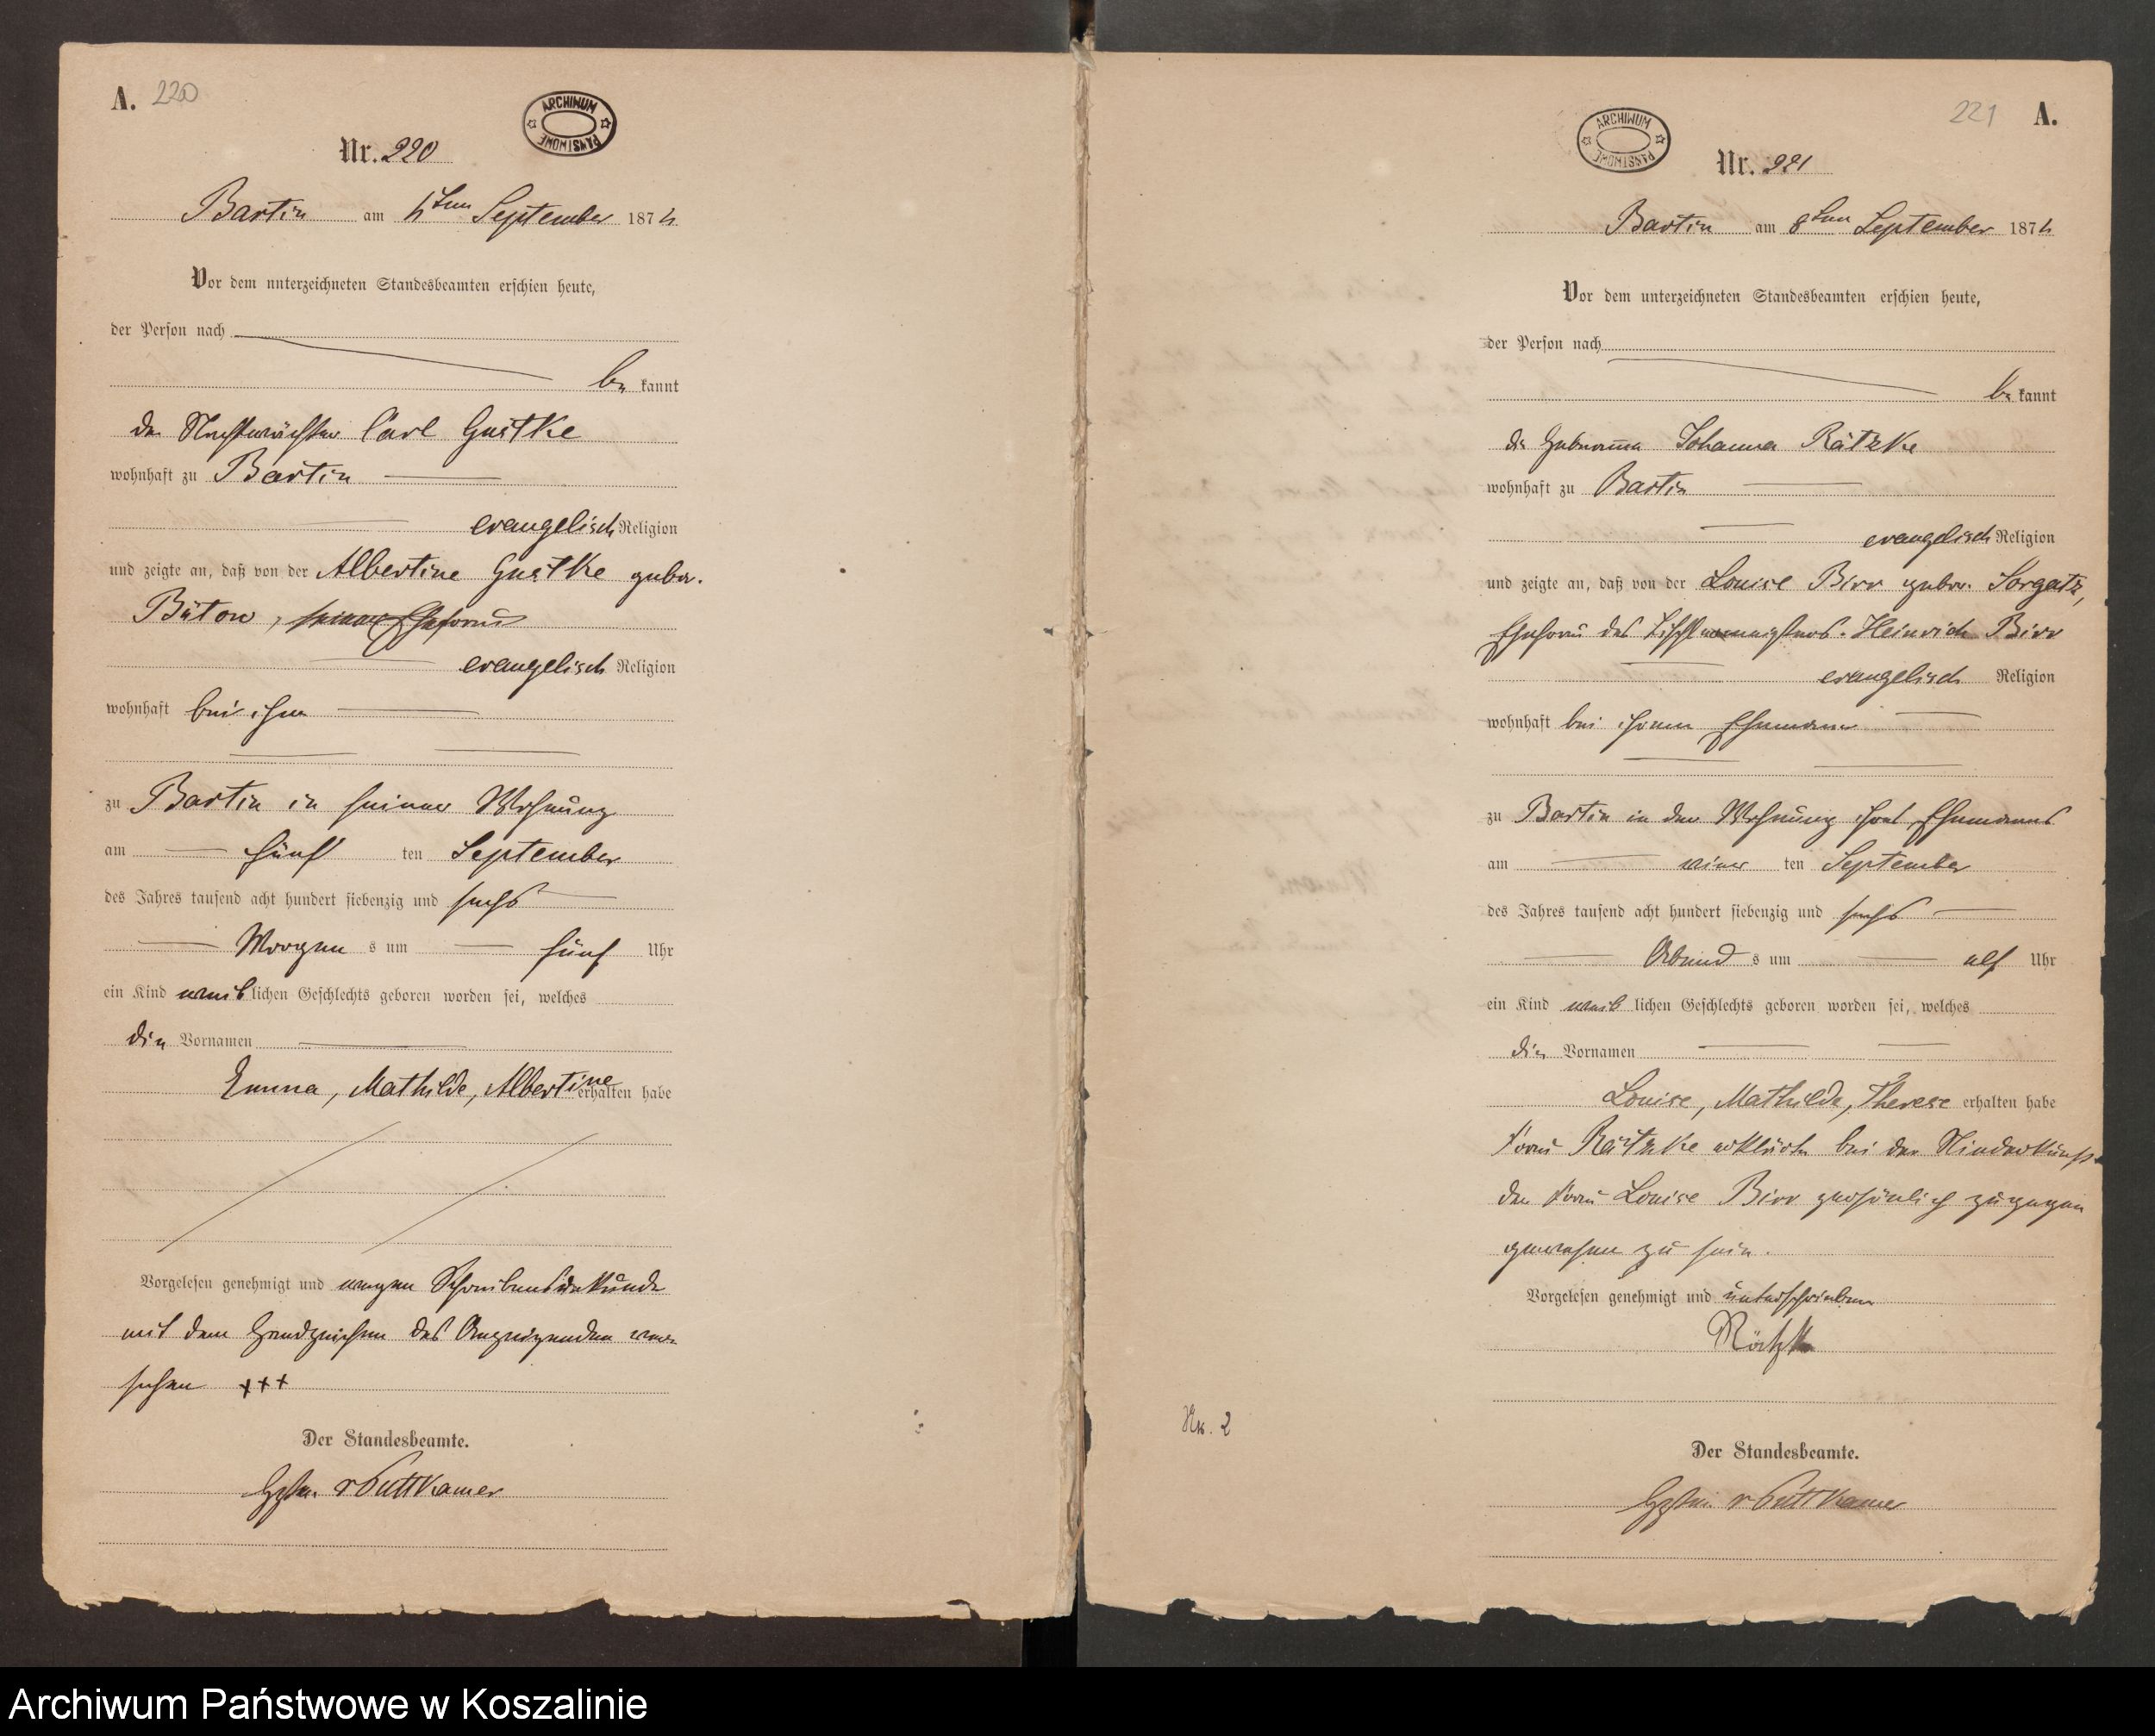 A. 220
ARCHIWUM PAŃSTWOWE
Nr. 220
Bartin am 6ten September 1876
Vor dem unterzeichneten Standesbeamten erschien heute,
der Person nach
be kannt
der Nachtwächter Carl Gustke
wohnhaft zu Bartin
evangelisch Religion
und zeigte an, daß von der Albertine Gustke gebor.
Bütow, seiner Ehefrau
evangelisch Religion
wohnhaft bei ihm
zu Bartin in seiner Wohnung
am fünf ten September
des Jahres tausend acht hundert siebenzig und sechs
Morgen s um fünf Uhr
ein Kind weib lichen Geschlechts geboren worden sei, welches
die Vornamen
Emma, Mathilde, Albertine erhalten habe
Vorgelesen genehmigt und wegen Schreibensunkunde
mit dem Handzeichen des Anzeigenden ver-
sehen +++
Der Standesbeamte.
v Puttkamer
221 A.
ARCHIWUM PAŃSTWOWE
Nr. 221
Bartin am 8ten September 1876
Vor dem unterzeichneten Standesbeamten erschien heute,
der Person nach
be kannt
die Hebamme Johanna Rätzke
wohnhaft zu Bartin
evangelisch Religion
und zeigte an, daß von der Louise Birr gebor. Sorgatz,
Ehefrau des Tischlermeisters Heinrich Birr
evangelisch Religion
wohnhaft bei ihrem Ehemann
zu Bartin in der Wohnung ihres Ehemanns
am ten September
des Jahres tausend acht hundert siebenzig und sechs
Abend s um elf Uhr
ein Kind weib lichen Geschlechts geboren worden sei, welches
die Vornamen
Louise, Mathilde, Therese erhalten habe
Frau Rätzke erklärte bei der Niederkunft
der Frau Louise Birr persönlich zugegen
gewesen zu sein.
Vorgelesen genehmigt und unterschrieben
Rätzke
Nr. 2
Der Standesbeamte.
v Puttkamer
Archiwum Państwowe w Koszalinie